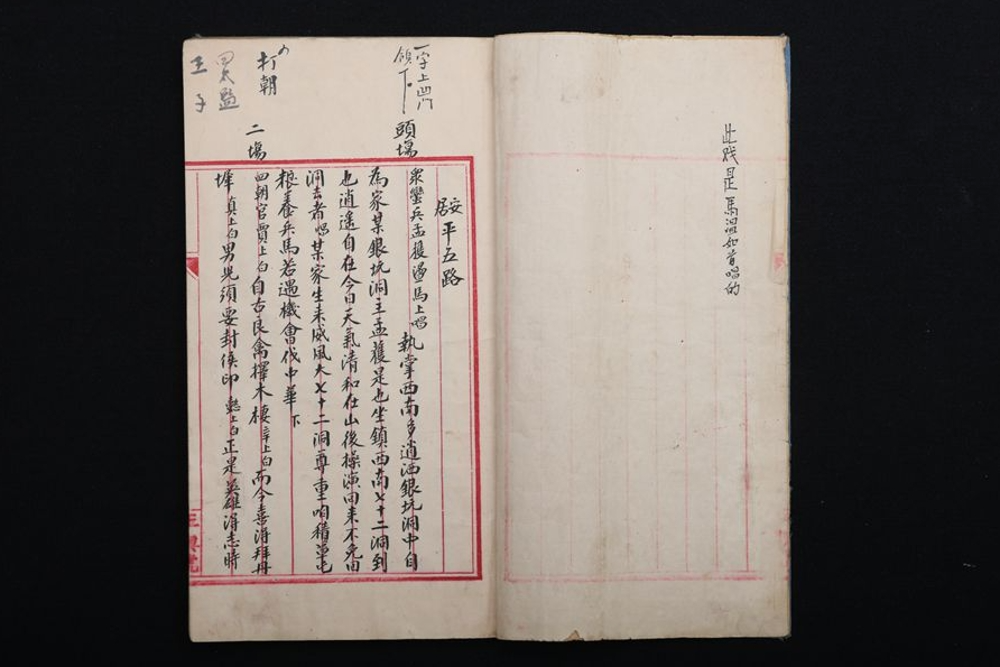 此戏是馬溫如首唱的
一字上凹门
領下
頭場
安居平五路
眾蠻兵孟獲盪馬上唱 執掌西南多逍洒銀坑洞中自
為家某銀坑洞主孟獲是也坐鎮西南七十二洞到
也逍遙自在今日天氣清和在山後操演回來不免回
洞去者唱某家生來威風大七十二洞尊重咱積草屯
粮養兵馬若遇機會伐中華 下
打朝
二場
四朝官賈上白自古良禽擇木棲辛上白而今喜得拜丹
墀真上白男兒須要封侯印 上白正是英雄得志時
四太監
王子